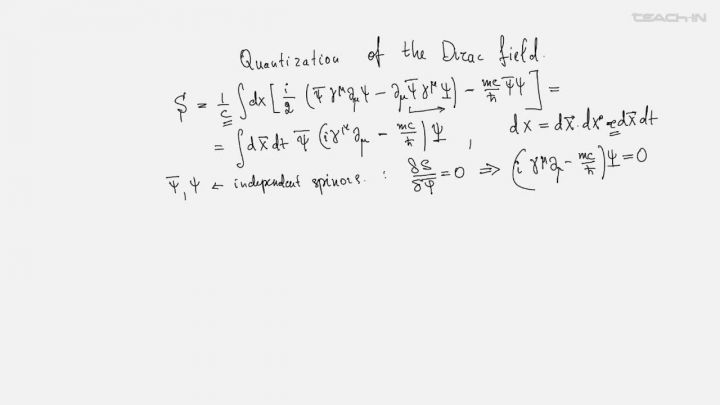 TEACH-IN
Quantization of the Dirac field.
S = 1/c ∫dx [ i/2 ( Ψ̄ γ^μ ∂_μ Ψ − ∂_μ Ψ̄ γ^μ Ψ ) − mc/ħ Ψ̄Ψ ] =
= ∫dx̄ dt Ψ̄ ( iγ^μ ∂_μ − mc/ħ ) Ψ , dx = dx̄·dx⁰ = cdx̄dt
Ψ̄, Ψ ← independent spinors. : δS/δΨ̄ = 0 ⇒ ( i γ^μ ∂_μ − mc/ħ ) Ψ = 0